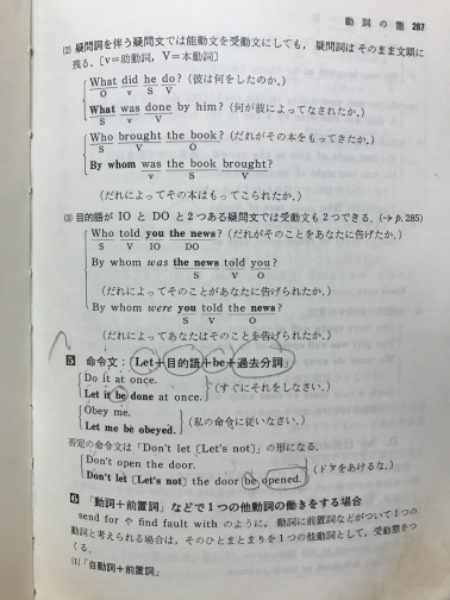 動 詞 の 態 287
(2) 疑問詞を伴う疑問文では能動文を受動文にしても, 疑問詞はそのまま文頭に
残る.〔v=助動詞, V=本動詞〕
What did he do? (彼は何をしたのか.)
O v S V
What was done by him? (何が彼によってなされたか.)
S v V
Who brought the book? (だれがその本をもってきたか.)
S V O
By whom was the book brought?
v S V
(だれによってその本はもってこられたか.)
(3) 目的語が IO と DO と2つある疑問文では受動文も2つできる. (→p. 285)
Who told you the news? (だれがそのことをあなたに告げたか.)
S V IO DO
By whom was the news told you?
S V O
(だれによってそのことがあなたに告げられたか.)
By whom were you told the news?
S V O
(だれによってあなたはそのことを告げられたか.)
5 命令文: Let+目的語+be+過去分詞
Do it at once.
Let it be done at once.
(すぐにそれをしなさい.)
Obey me.
Let me be obeyed.
(私の命令に従いなさい.)
否定の命令文は「Don't let〔Let's not〕」の形になる.
Don't open the door.
Don't let〔Let's not〕the door be opened.
(ドアをあけるな.)
6 「動詞+前置詞」などで1つの他動詞の働きをする場合
send for や find fault with のように, 動詞に前置詞などがついて1つの
動詞と考えられる場合は, そのひとまとまりを1つの他動詞として, 受動態をつ
くる.
(1) 「自動詞+前置詞」